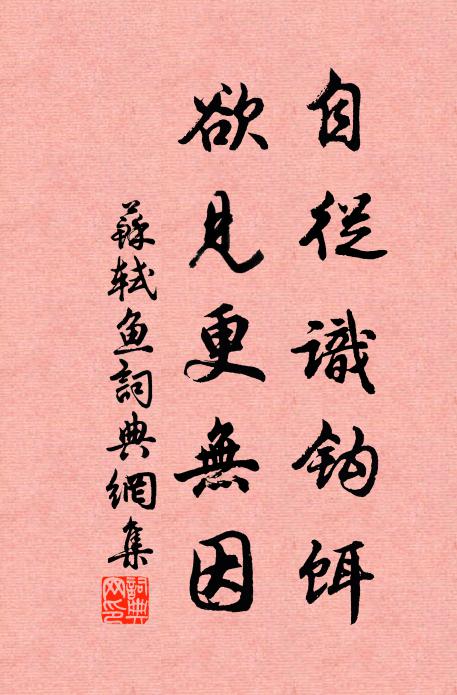 自從識鈎餌
欲見更無因
蘇軾魚詞典網集
詞典網印